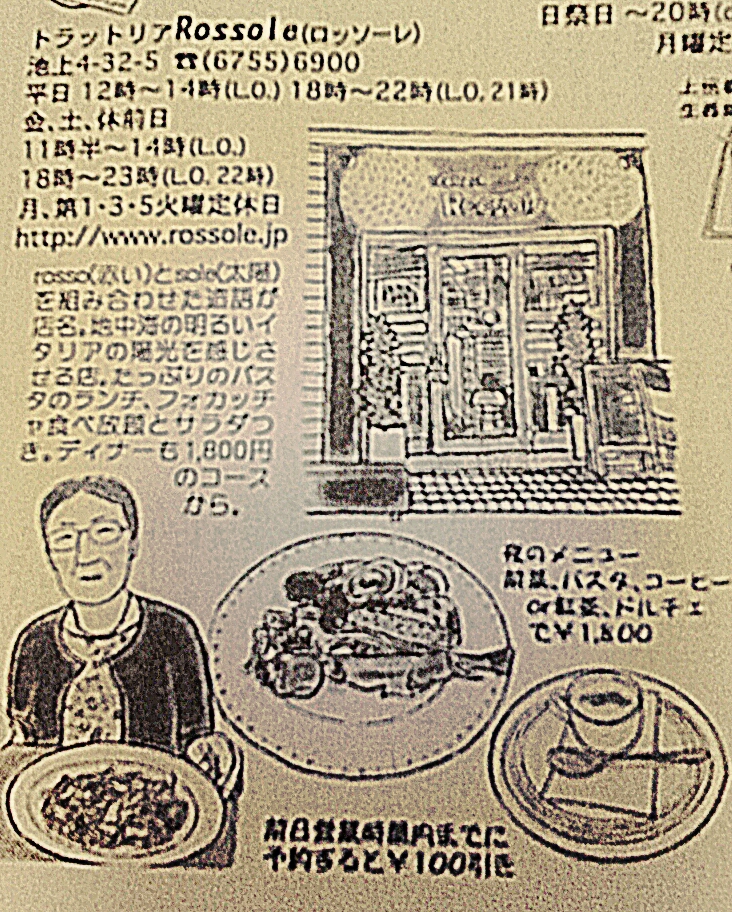 トラットリアRossole(ロッソーレ)
池上4-32-5 ☎(6755)6900
平日 12時〜14時(L.O.) 18時〜22時(L.O. 21時)
金、土、休前日
11時半〜14時(L.O.)
18時〜23時(L.O. 22時)
月、第1・3・5火曜定休日
http://www.rossole.jp
rosso(赤い)とsole(太陽)
を組み合わせた造語が
店名。地中海の明るいイ
タリアの陽光を感じさ
せる店。たっぷりのパス
タのランチ、フォカッチ
ャ食べ放題とサラダつ
き。ディナーも1,800円
のコース
から。
日祭日 〜20時(
月曜定
夜のメニュー
前菜、パスタ、コーヒー
or紅茶、ドルチェ
で¥1,800
前日営業時間内までに
予約すると¥100引き